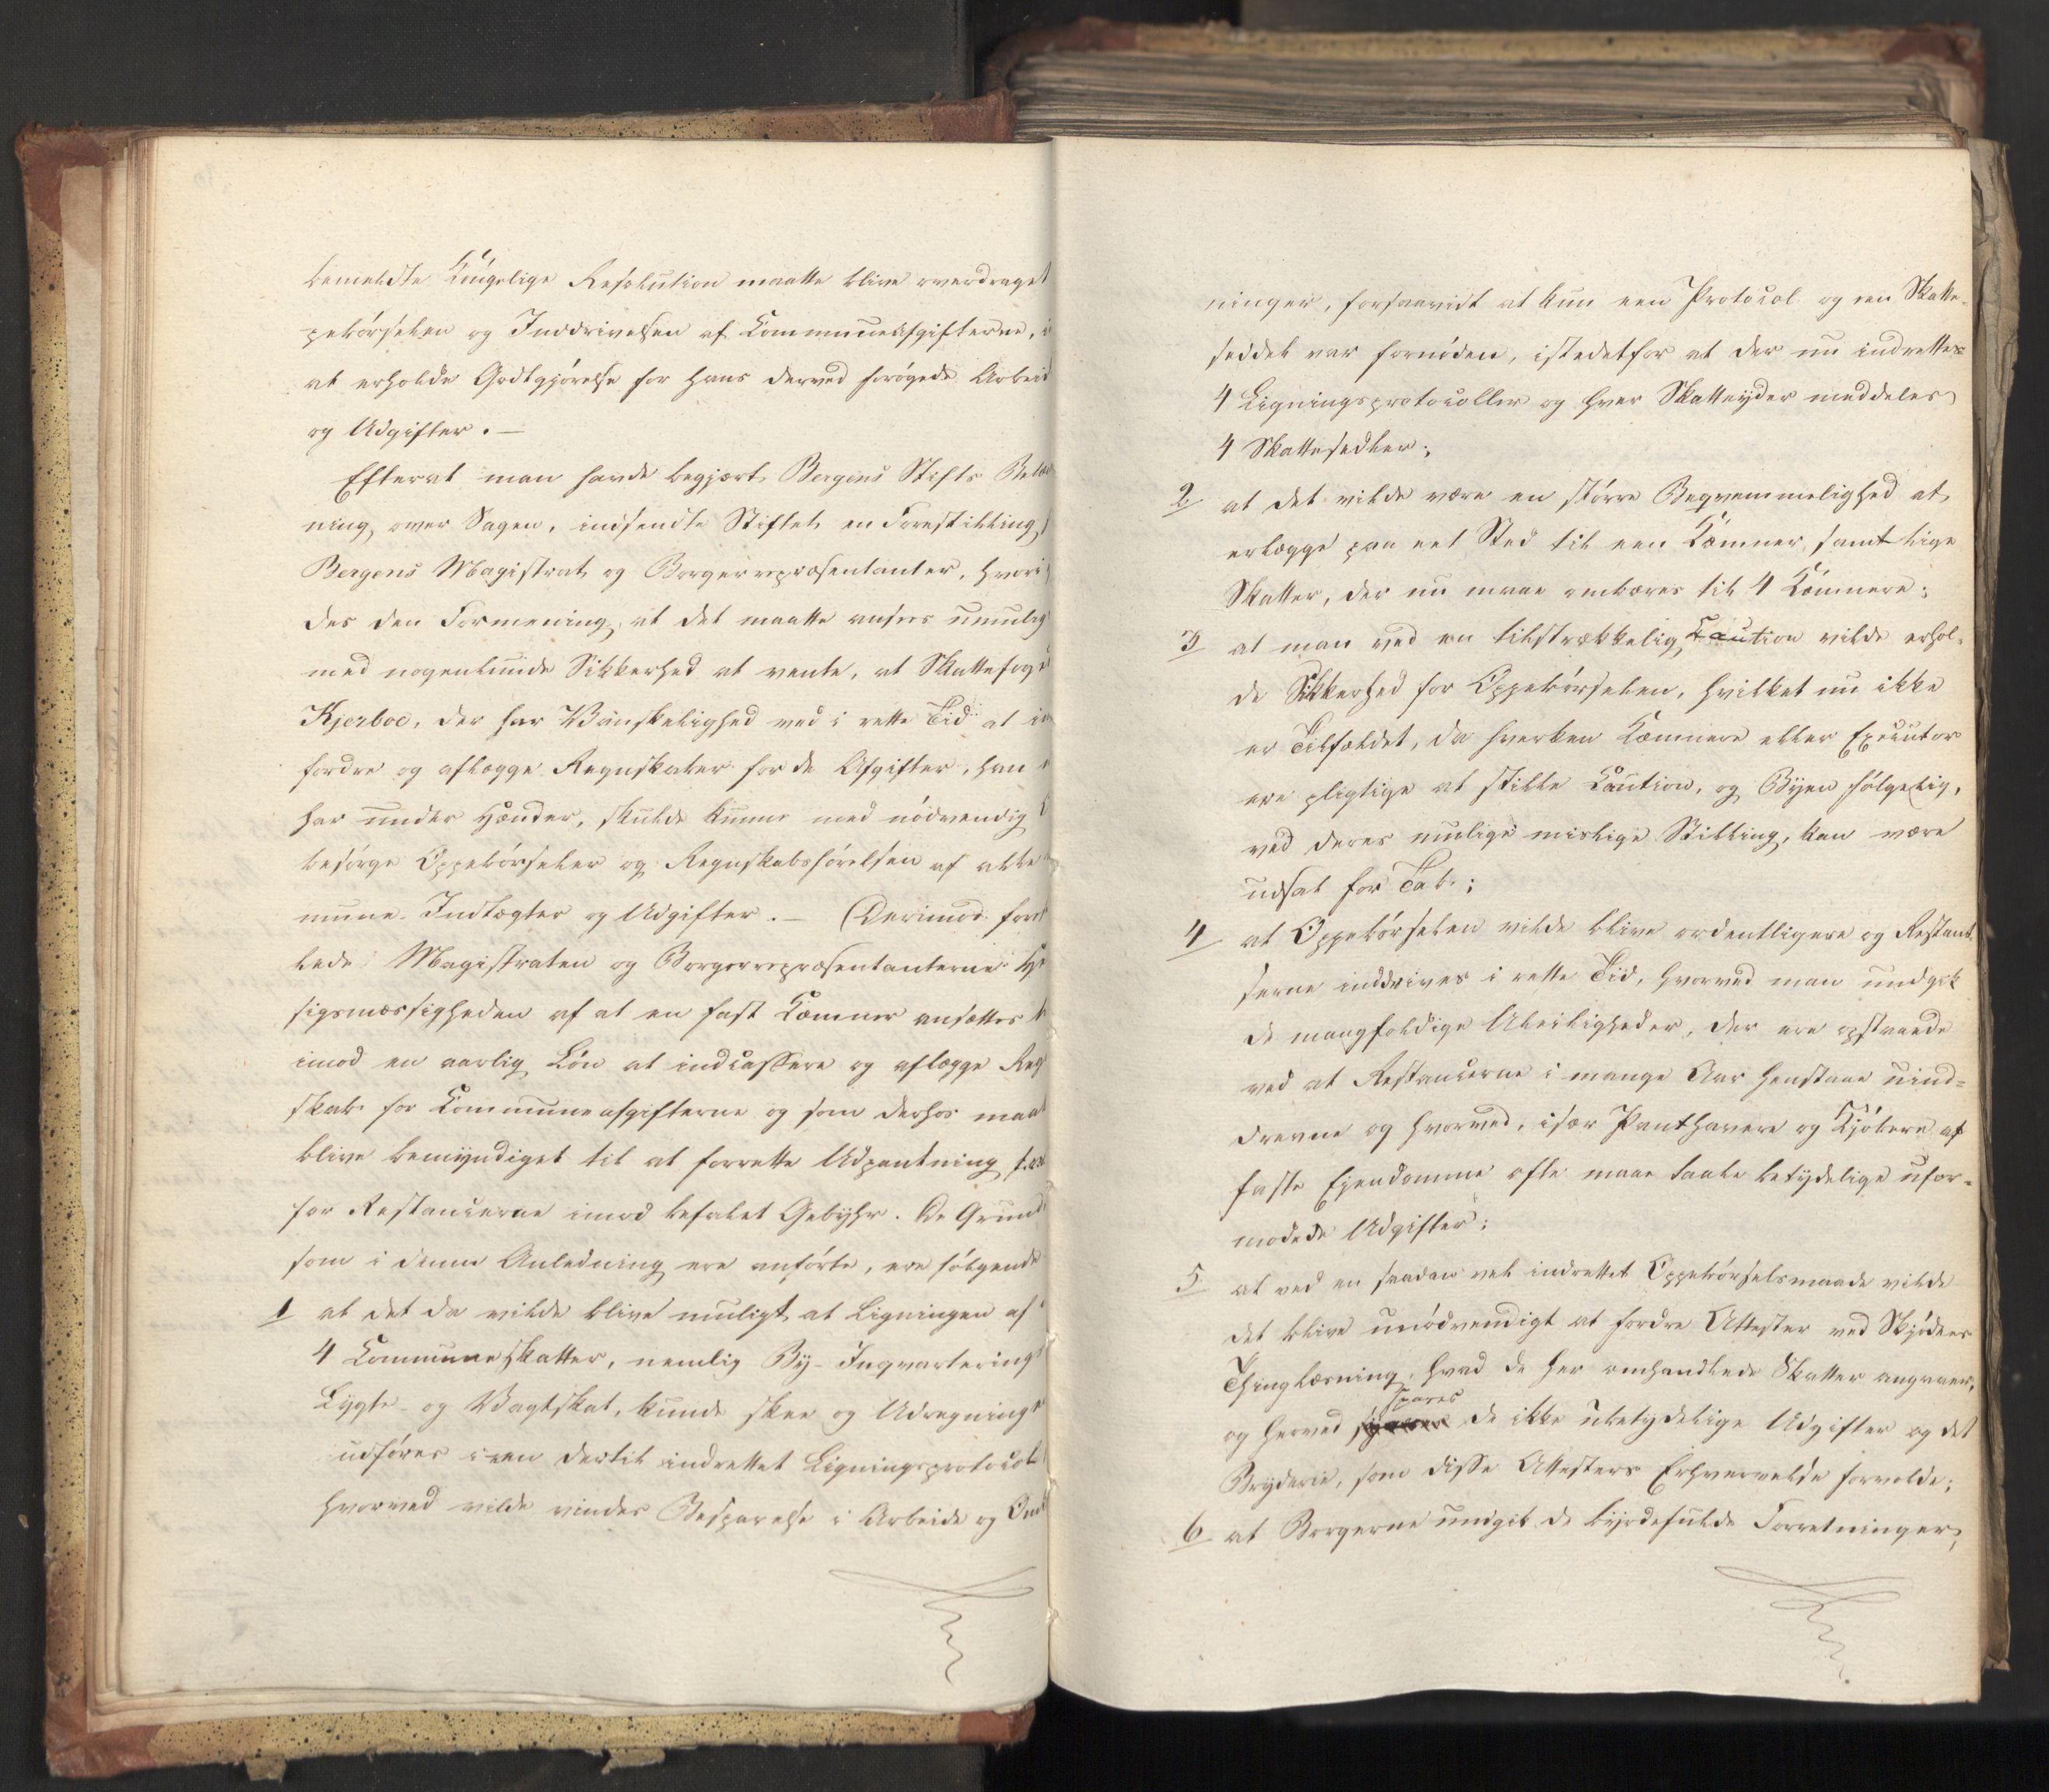 bemeldte Kongelige Resolution maatte blive overdraget
pebørselen og Inddrivelsen af Communeafgifterne, i
at erholde Godtgjørelse for hans derved forøgede Arbeid
og Udgifter. —
Efterat man havde begjært Bergens Stifts Betæn
ning over Sagen, indsendte Stiftet en Forestilling
Bergens Magistrat og Borgerrepræsentanter, hvori
des den Formening, at det maatte ansees umulig
med nogenlunde Sikkerhed at vente, at Skattefoged
Kjerboe, der har Vanskelighed ved i rette Tid at in
fordre og aflægge Regnskaber for de Afgifter, han
har under Hænder, skulde kunne med nødvendig
besørge Oppebørseler og Regnskabsførelsen af alle
mune-Indtægter og Udgifter. — Derimod fore
lede Magistraten og Borgerrepræsentanterne He
sigsmæssigheden af at en fast Kæmner ansættes
imod en aarlig Løn at indcassere og aflægge Reg
skab for Communeafgifterne og som derhos maa
blive bemyndiget til at forrette Udpantning
for Restancerne imod befalet Gebyhr. De Grund
som i denne Anledning ere anførte, ere følgende
1 at det da vilde blive muligt at Ligningen af
4 Communeskatter, nemlig By- Inqvarterings
Lygte- og Vagtskat, kunde skee og Udregninge
udføres i een dertil indrettet Ligningsprotocol
hvorved vilde vindes Besparelse i Arbeide og Om
ninger, forsaavidt at kun een Protocol og een Skatte-
seddel var fornøden, istedetfor at der nu indrettes
4 Ligningsprotocoller og hver Skatteyder meddeles
4 Skattesedler;
2 at det vilde være en større Beqvemmelighed at
erlægge paa eet Sted til een Kæmner samtlige
Skatter, der nu maae ombæres til 4 Kæmnere;
3 at man ved en tilstrækkelig Caution vilde erhol-
de Sikkerhed for Oppebørselen, hvilket nu ikke
er Tilfældet, da hverken Kæmnere eller Executor
ere pligtige at stille Caution, og Byen følgelig,
ved deres mulige mislige Stilling, kan være
udsat for Tab;
4 at Oppebørselen vilde blive ordentligere og Restant-
serne inddrives i rette Tid, hvorved man undgik
de mangfoldige Uleiligheder, der ere opstaaede
ved at Restancerne i mange Aar henstaae uind-
drevne og hvorved, især Panthavere og Kjøbere af
faste Ejendomme ofte maae taale betydelige ufor-
modede Udgifter;
5 at ved en saadan vel indrettet Oppebørselsmaade vilde
det blive unødvendigt at fordre Attester ved Skjøders
Thinglæsning, hvad de her omhandlede Skatter angaaer,
og herved spares de ikke ubetydelige Udgifter og det
Bryderie, som disse Attesters Erhvervelse forvolde;
6 at Borgerne undgik de byrdefulde Forretninger,